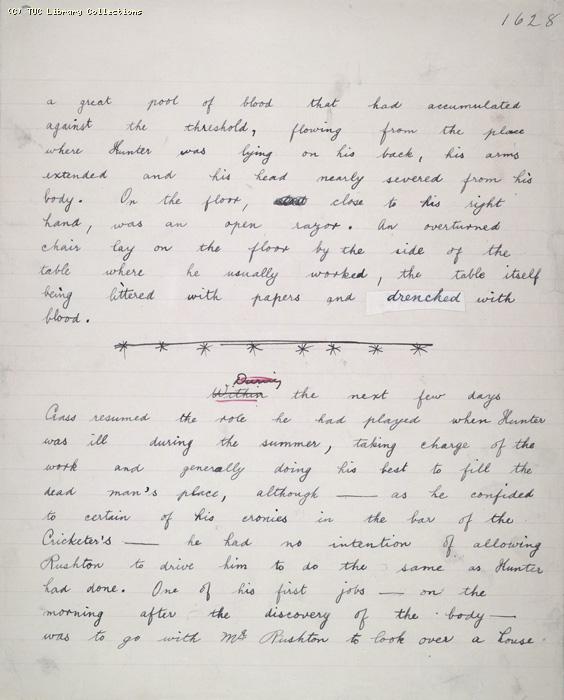 (C) TUC Library Collections
1628
a great pool of blood that had accumulated
against the threshold, flowing from the place
where Hunter was lying on his back, his arms
extended and his head nearly severed from his
body. On the floor, close to his right
hand, was an open razor. An overturned
chair lay on the floor by the side of the
table where he usually worked, the table itself
being littered with papers and drenched with
blood.
During
Within the next few days
Crass resumed the role he had played when Hunter
was ill during the summer, taking charge of the
work and generally doing his best to fill the
dead man's place, although — as he confided
to certain of his cronies in the bar of the
Cricketer's — he had no intention of allowing
Rushton to drive him to do the same as Hunter
had done. One of his first jobs — on the
morning after the discovery of the body —
was to go with Mr Rushton to look over a house